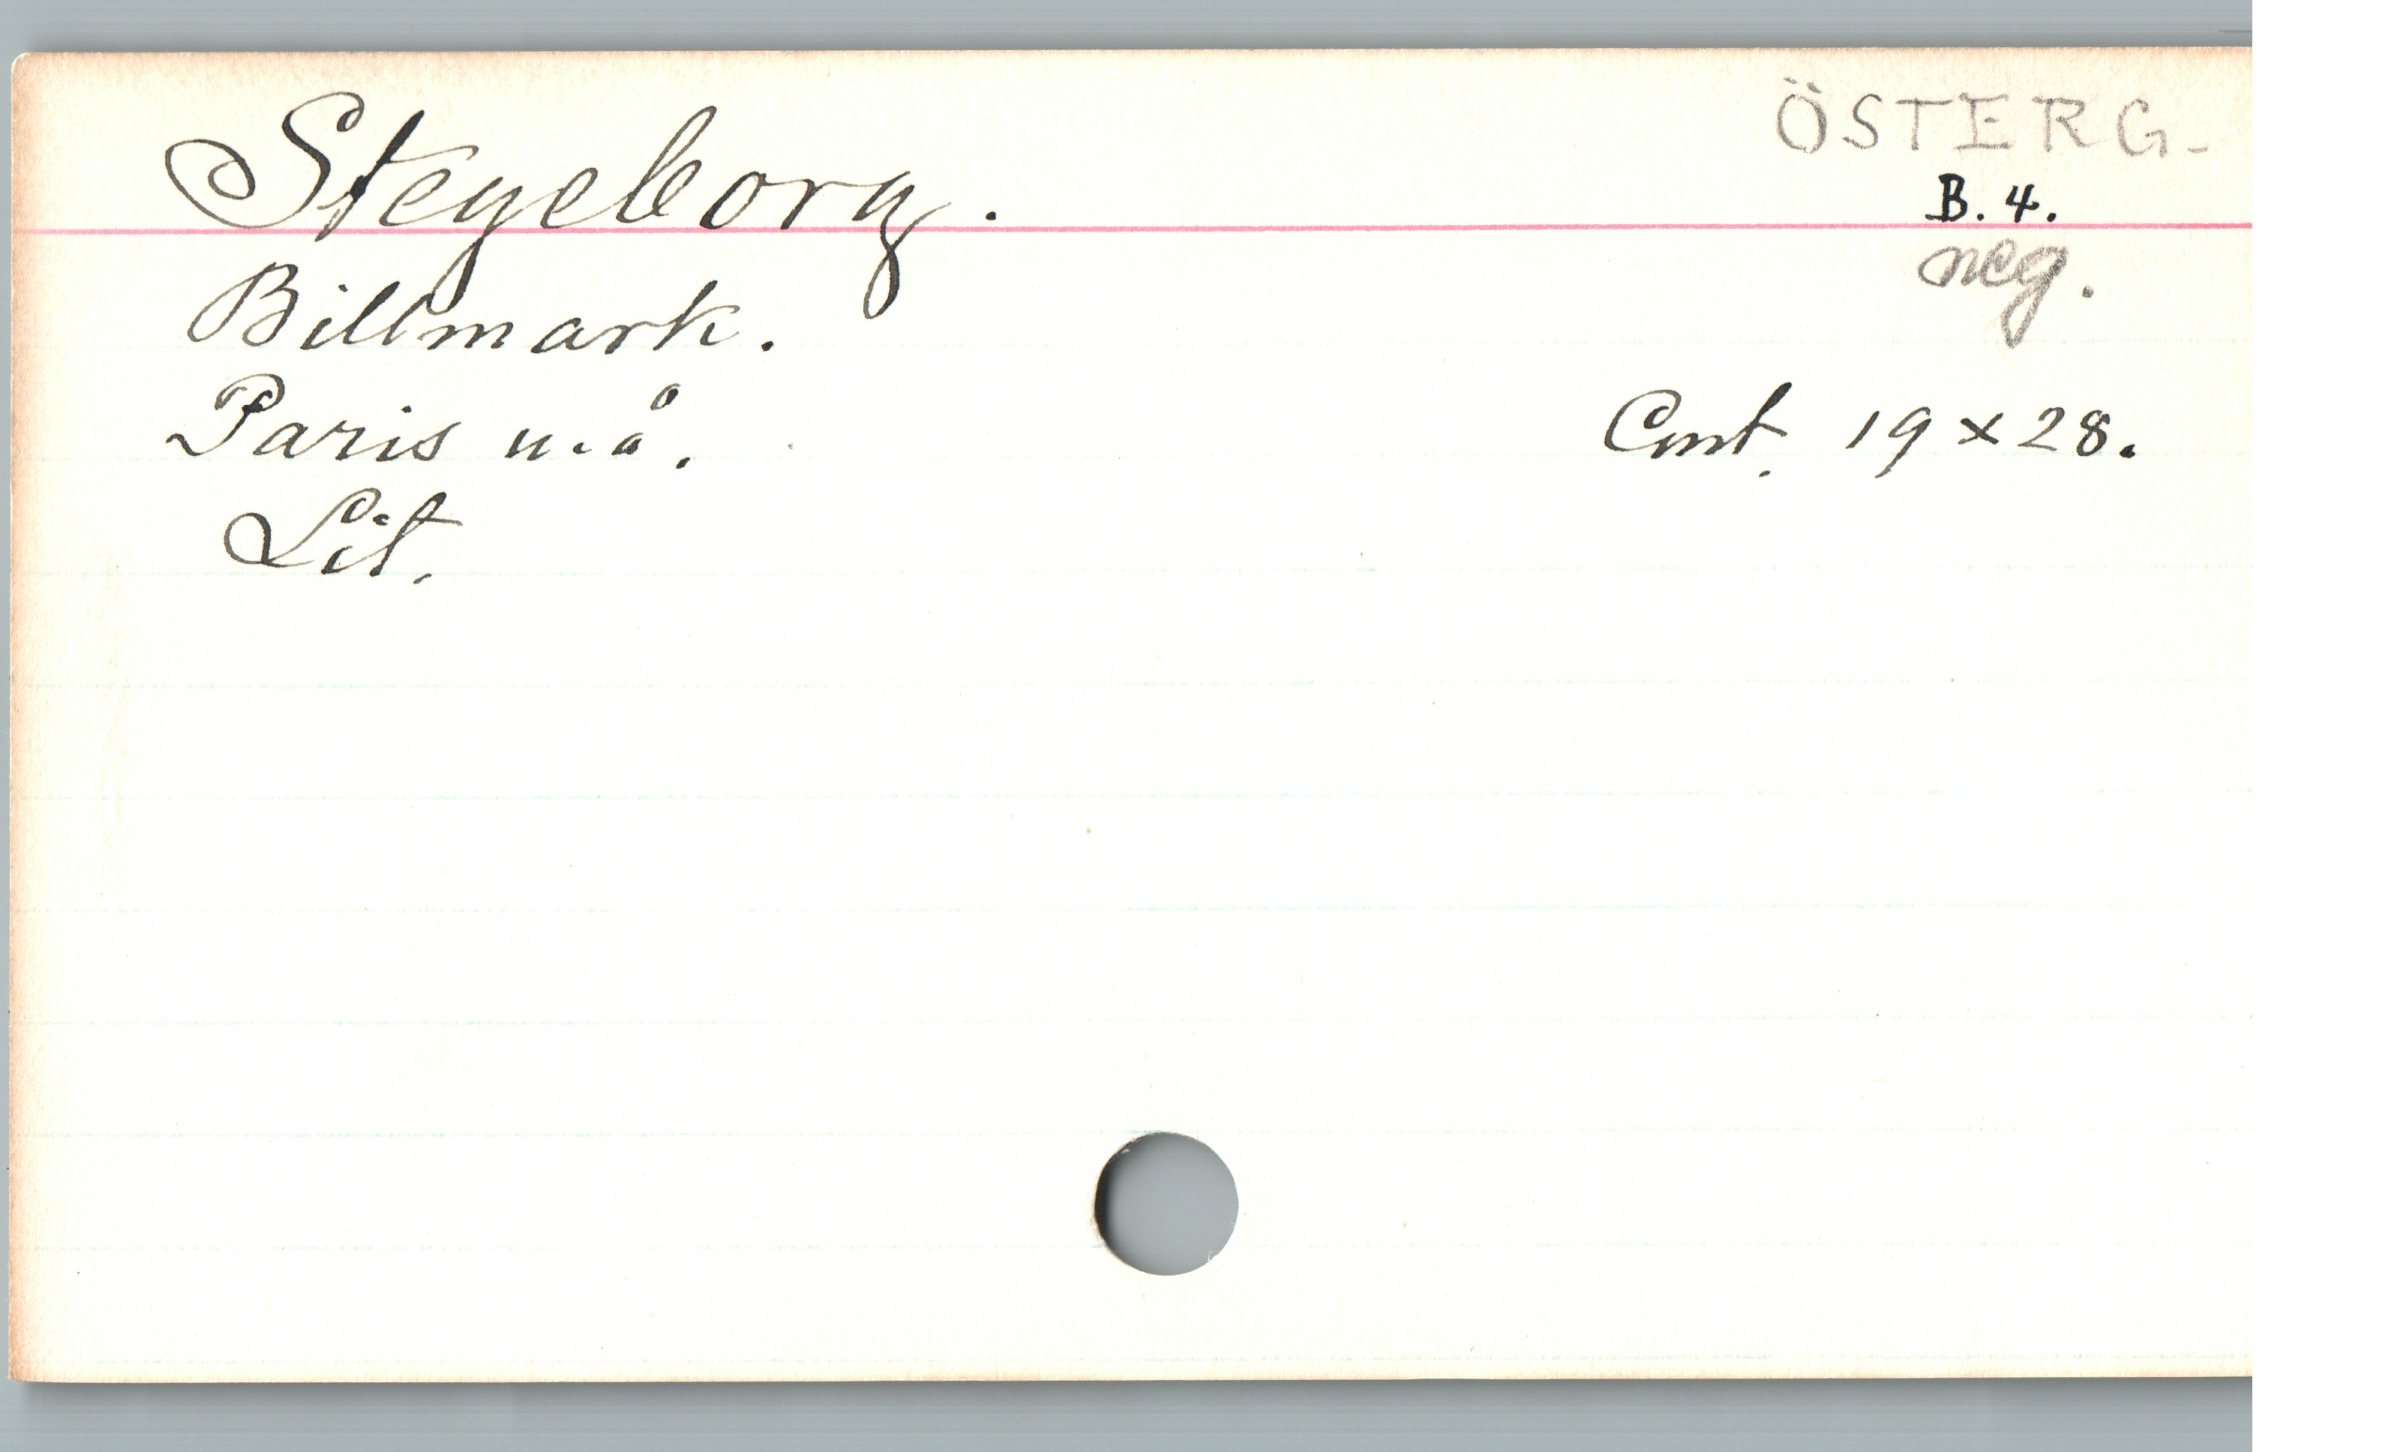 ÖSTERG-
Stegeborg.
B. 4.
neg.
Billmark.
Paris u. å. Cmt. 19 x 28.
Lit.